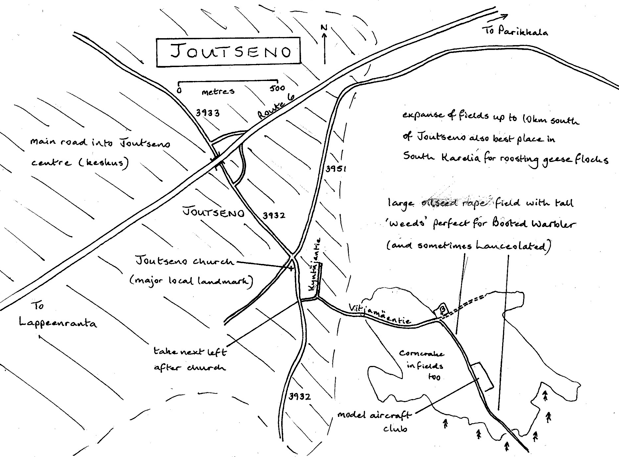 JOUTSENO
N
To Parikkala
0 500
metres
Route 6
3933
main road into Joutseno
centre (keskus)
expanse of fields up to 10km south
of Joutseno also best place in
South Karelia for roosting geese flocks
3951
JOUTSENO
3932
large oilseed rape field with tall
'weeds' perfect for Booted Warbler
(and sometimes Lanceolated)
Joutseno church
(major local landmark)
To
Lappeenranta
Vitjamäentie
P
take next left
after church
Corncrake
in fields
too
3932
model aircraft
club